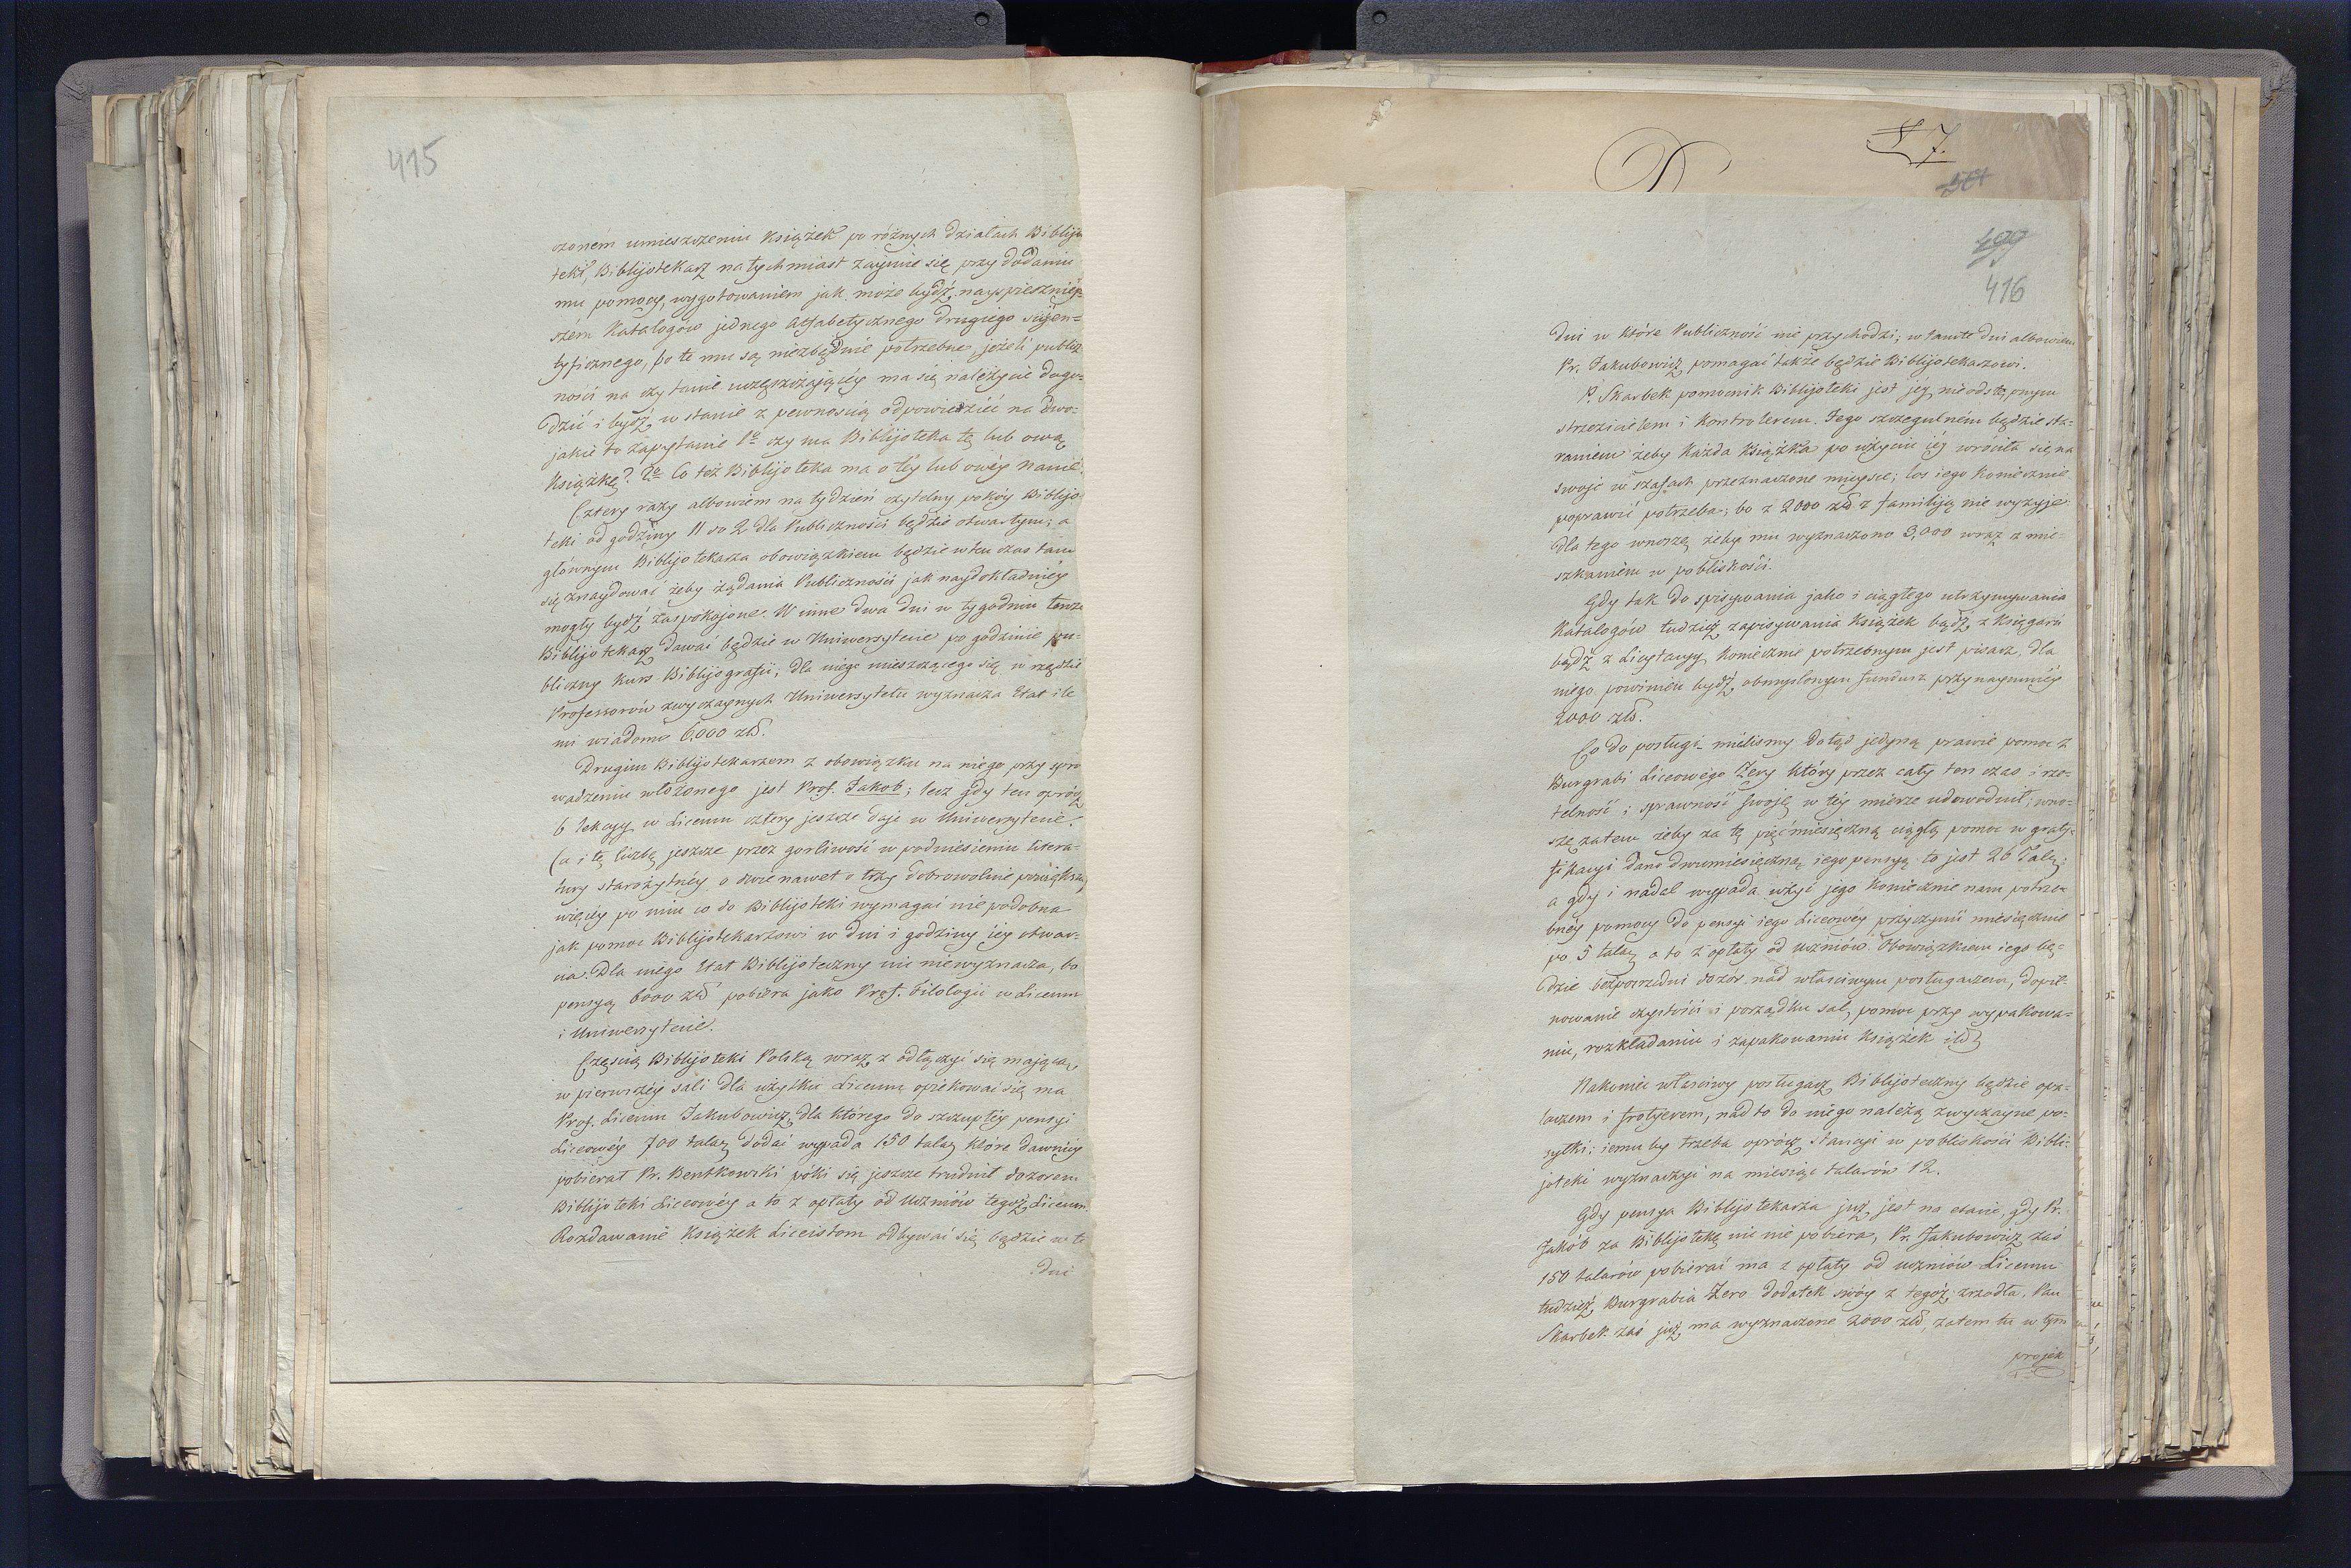 415
czonem umieszczeniu Książek po różnych działach Biblijo
teki, Biblijotekarz natychmiast zaymie się, przy dodaniu
mu pomocy, wygotowaniem jak może bydź nayspieszniey-
szém Katalogów jednego Alfabetycznego drugiego scyjen-
tyficznego, bo te mu są niezbędnie potrzebne, jeżeli publicz
ności na czytanie uczęszczającéy ma się należycie dogo-
dzić i bydź w stanie z pewnością odpowiedzieć na dwo-
jakie to zapytanie 1º czy ma Biblijoteka tę lub ową
Książkę? 2º Co też Biblijoteka ma o téy lub owéy nauce.
Cztery razy albowiem na tydzień czytelny pokóy Biblijo-
teki od godziny 11 do 2 dla Publiczności będzie otwartym; a
głównym Biblijotekarza obowiązkiem będzie wten czas tam
się znaydować żeby żądania Publiczności jak naydokładniéy
mogły bydź zaspokojone. W inne dwa dni w tygodniu tenże
Biblijotekarz dawać będzie w Uniwersytecie po godzinie pu-
bliczny Kurs Biblijografii; dla niego mieszczącego się w rzędzie
Professorów zwyczaynych Uniwersytetu wyznacza Etat ile
mi wiadomo 6,000 złł.
Drugim Biblijotekarzem z obowiązku na niego przy spro
wadzeniu włożonego jest Prof. Jakob; lecz gdy ten oprócz
6 lekcyy w Liceum cztery jeszcze daje w Uniwersytecie.
(a i tę liczbę jeszcze przez gorliwość w podniesieniu litera-
tury starożytnéy o dwie nawet o trzy dobrowolnie powiększa)
więcéy po nim co do Biblijoteki wymagać nie podobna
jak pomoc Biblijotekarzowi w dni i godziny iey otwar-
cia. Dla niego Etat Biblijoteczny nic niewyznacza, bo
pensyą 6000 złł pobiera jako Prof. filologii w Liceum
i Uniwersytecie.
Częścią Biblijoteki Polską wraz z odłączyć się mającą
w pierwszéy sali dla użytku Liceum opiekować się ma
Prof. Liceum Jakubowicz, dla którego do szczupłéy pensyi
Liceowéy 700 talarz dodać wypada 150 talarz które dawniéy
pobierał Pr. Bentkowski póki się jeszcze trudnił dozorem
Biblijoteki Liceowéy a to z opłaty od Uczniów tegoż Liceum.
Rozdawanie Książek Liceistom odbywać się będzie w te
dni
7.
499
416
dni w które Publiczność nie przychodzi; w tamte dni albowiem
Pr. Jakubowicz pomagać także będzie Biblijotekarzowi.
P. Skarbek pomocnik Biblijoteki jest jey nieodstępnym
strzeżicielem i Kontrolerem. Jego szczegulném będzie sta-
raniem żeby Każda Książka po użyciu iéy wróciła się na
swoje w szafach przeznaczone mieysce; los iego Koniecznie
poprawić potrzeba; bo z 2000 złł z familiją nie wyżyje
dla tego wnoszę żeby mu wyznaczono 3,000 wraz z mie-
szkaniem w pobliskości.
Gdy tak do spisywania jako i ciągłego utrzymywania
Katalogów tudzież zapisywania Książek bądź z Księgarń
bądź z Licytacyy Koniecznie potrzebnym jest pisarz, dla
niego powinien bydź obmyślonym fundusz przynaymniéy
2000 złł.
Co do posługi mieliśmy dotąd jedyną prawie pomoc z
Burgrabi Liceowégo Zery który przez cały ten czas i rze-
telność i sprawność swoję w téy mierze udowodnił; wno-
szę zatem żeby za tę pięćmiesięczną ciągłą pomoc w graty-
fikacyi dano dwumiesięczną iego pensyą to jest 26 Talr;
a gdy i nadal wypada użyć jego Koniecznie nam potrze-
bnéy pomocy do pensyi iego Liceowéy przyczynić miesięcznie
po 5 talarz a to z opłaty od uczniów. Obowiązkiem iego bę-
dzie bezpośredni dozór nad właściwym posługaczem, dopil-
nowanie czystości i porządku sal, pomoc przy wypakowa-
niu, rozkładaniu i zapakowaniu Książek itd.
Nakoniec właściwy posługacz Biblijoteczny będzie opa-
laczem i froterem, nad to do niego należą zwyczayne po-
syłki; iemu by trzeba oprócz stancyi w pobliskości Bibli-
joteki wyznaczyć na miesiąc talarów 12.
Gdy pensya Biblijotekarza już jest na etacie, gdy Pr.
Jakób za Biblijotekę nic nie pobiera, Pr. Jakubowicz zaś
150 talarów pobierać ma z opłaty od uczniów Liceum
tudzież Burgrabia Zero dodatek swóy z tegoż zrzodła. Pan
Skarbek zaś już ma wyznaczone 2000 złł, zatem tu w tym
projek